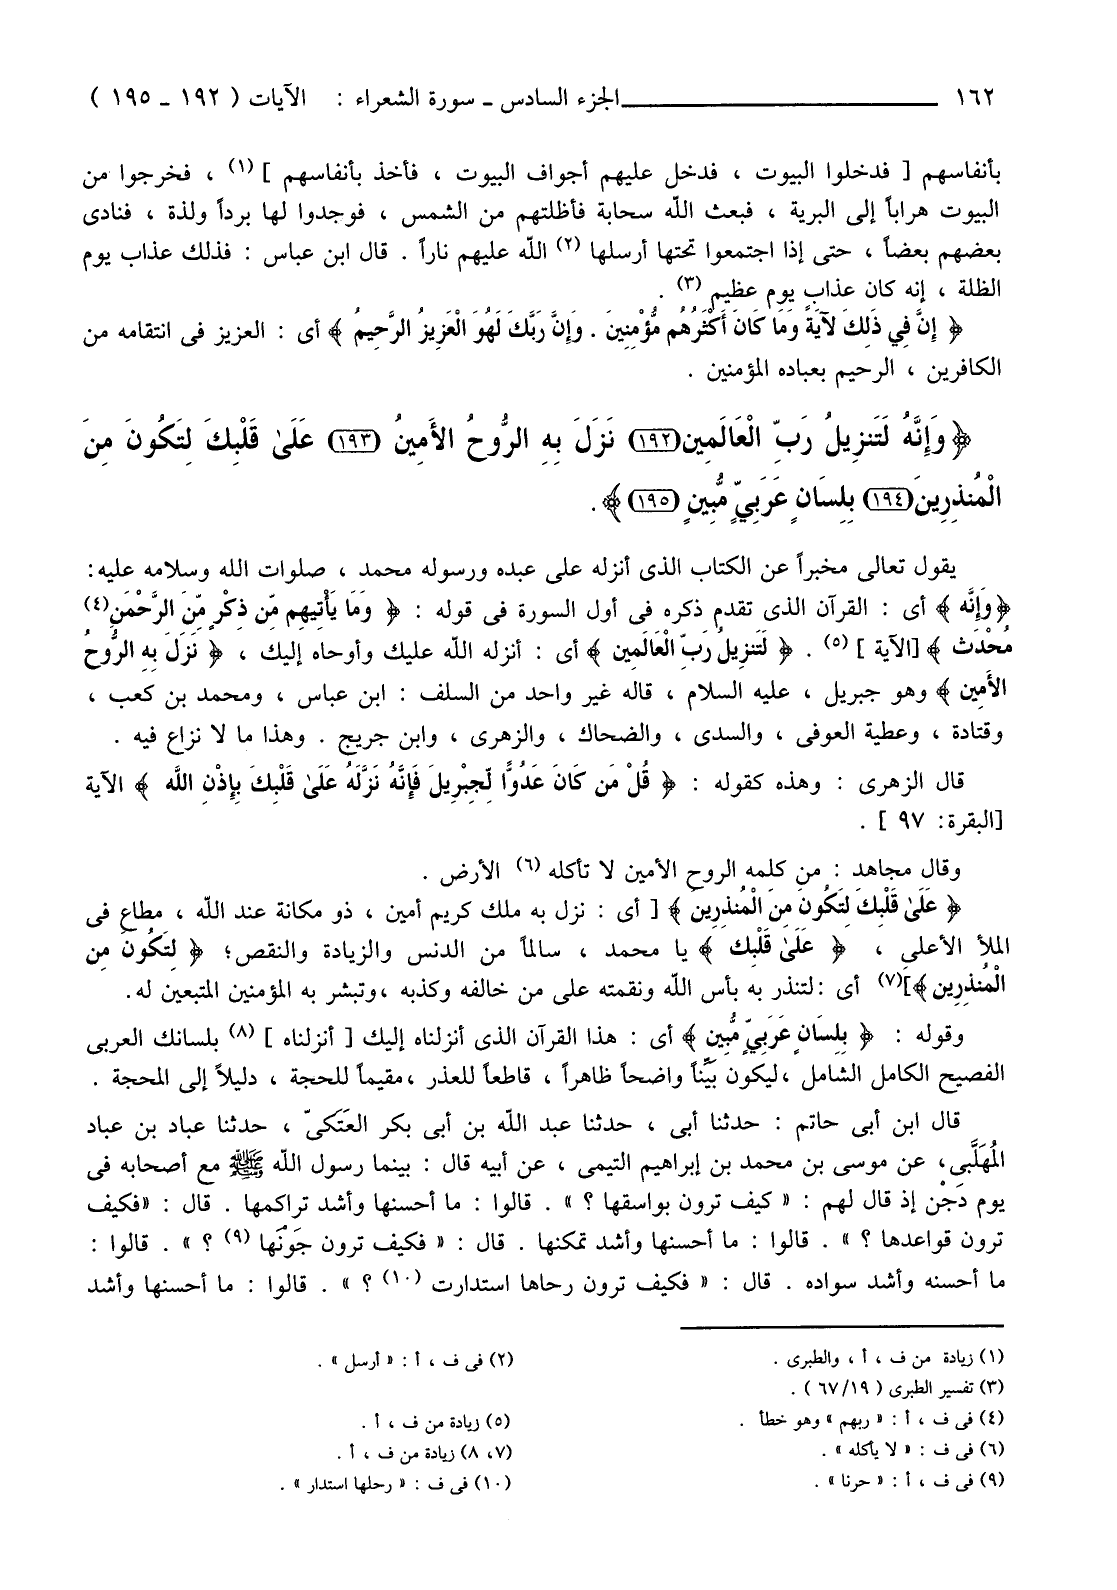 ١٦٢ ــــــــــــــــــــ الجزء السادس ـ سورة الشعراء : الآيات ( ١٩٢ ـ ١٩٥ )
بأنفاسهم [ فدخلوا البيوت ، فدخل عليهم أجواف البيوت ، فأخذ بأنفاسهم ] (١) ، فخرجوا من
البيوت هراباً إلى البرية ، فبعث الله سحابة فأظلتهم من الشمس ، فوجدوا لها برداً ولذة ، فنادى
بعضهم بعضاً ، حتى إذا اجتمعوا تحتها أرسلها (٢) الله عليهم ناراً . قال ابن عباس : فذلك عذاب يوم
الظلة ، إنه كان عذاب يوم عظيم (٣) .
﴿ إِنَّ فِي ذَلِكَ لآيَةً وَمَا كَانَ أَكْثَرُهُم مُّؤْمِنِينَ . وَإِنَّ رَبَّكَ لَهُوَ الْعَزِيزُ الرَّحِيمُ ﴾ أى : العزيز فى انتقامه من
الكافرين ، الرحيم بعباده المؤمنين .
﴿ وَإِنَّهُ لَتَنزِيلُ رَبِّ الْعَالَمِين (١٩٢) نَزَلَ بِهِ الرُّوحُ الأَمِينُ (١٩٣) عَلَىٰ قَلْبِكَ لِتَكُونَ مِنَ
الْمُنذِرِينَ (١٩٤) بِلِسَانٍ عَرَبِيٍّ مُّبِينٍ (١٩٥) ﴾ .
يقول تعالى مخبراً عن الكتاب الذى أنزله على عبده ورسوله محمد ، صلوات الله وسلامه عليه:
﴿ وَإِنَّه ﴾ أى : القرآن الذى تقدم ذكره فى أول السورة فى قوله : ﴿ وَمَا يَأْتِيهِم مِّن ذِكْرٍ مِّنَ الرَّحْمَنِ(٤)
مُحْدَث ﴾ [الآية ] (٥) . ﴿ لَتَنزِيلُ رَبِّ الْعَالَمِين ﴾ أى : أنزله الله عليك وأوحاه إليك ، ﴿ نَزَلَ بِهِ الرُّوحُ
الأَمِين ﴾ وهو جبريل ، عليه السلام ، قاله غير واحد من السلف : ابن عباس ، ومحمد بن كعب ،
وقتادة ، وعطية العوفى ، والسدى ، والضحاك ، والزهرى ، وابن جريج . وهذا ما لا نزاع فيه .
قال الزهرى : وهذه كقوله : ﴿ قُلْ مَن كَانَ عَدُوًّا لِّجِبْرِيلَ فَإِنَّهُ نَزَّلَهُ عَلَىٰ قَلْبِكَ بِإِذْنِ اللَّه ﴾ الآية
[البقرة: ٩٧ ] .
وقال مجاهد : من كلمه الروح الأمين لا تأكله (٦) الأرض .
﴿ عَلَىٰ قَلْبِكَ لِتَكُونَ مِنَ الْمُنذِرِينَ ﴾ [ أى : نزل به ملك كريم أمين ، ذو مكانة عند الله ، مطاع فى
الملأ الأعلى ، ﴿ عَلَىٰ قَلْبِك ﴾ يا محمد ، سالماً من الدنس والزيادة والنقص؛ ﴿ لِتَكُونَ مِنَ
الْمُنذِرِين ﴾](٧) أى :لتنذر به بأس الله ونقمته على من خالفه وكذبه ،وتبشر به المؤمنين المتبعين له.
وقوله : ﴿ بِلِسَانٍ عَرَبِيٍّ مُّبِين ﴾ أى : هذا القرآن الذى أنزلناه إليك [ أنزلناه ] (٨) بلسانك العربى
الفصيح الكامل الشامل ،ليكون بَيِّناً واضحاً ظاهراً ، قاطعاً للعذر ،مقيماً للحجة ، دليلاً إلى المحجة .
قال ابن أبى حاتم : حدثنا أبى ، حدثنا عبد الله بن أبى بكر العَتَكىّ ، حدثنا عباد بن عباد
المُهَلَّبى، عن موسى بن محمد بن إبراهيم التيمى ، عن أبيه قال : بينما رسول الله ﷺ مع أصحابه فى
يوم دَجْن إذ قال لهم : « كيف ترون بواسقها ؟ » . قالوا : ما أحسنها وأشد تراكمها . قال : «فكيف
ترون قواعدها ؟ » . قالوا : ما أحسنها وأشد تمكنها . قال : « فكيف ترون جَوْنَها (٩) ؟ » . قالوا :
ما أحسنه وأشد سواده . قال : « فكيف ترون رحاها استدارت (١٠) ؟ » . قالوا : ما أحسنها وأشد
(١) زيادة من ف ، أ ، والطبرى .
(٢) فى ف ، أ : « أرسل » .
(٣) تفسير الطبرى ( ١٩/ ٦٧ ) .
(٤) فى ف ، أ : « ربهم » وهو خطأ .
(٥) زيادة من ف ، أ .
(٦) فى ف : « لا يأكله » .
(٧، ٨) زيادة من ف ، أ .
(٩) فى ف ، أ : « حرنا » .
(١٠) فى ف : « رحلها استدار » .